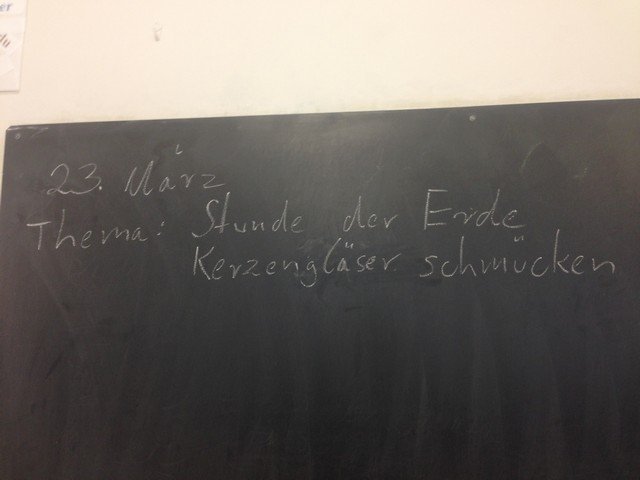 23. März
Thema: Stunde der Erde
Kerzengläser schmücken